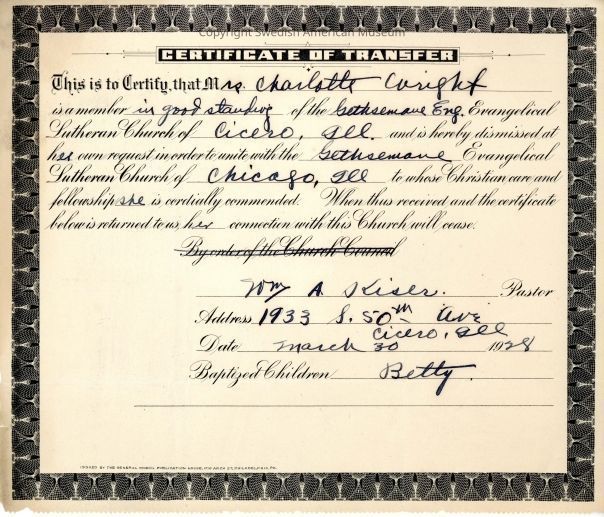 Copyright Swedish American Museum
CERTIFICATE OF TRANSFER
This is to Certify, that Mrs. Charlotte Wright
is a member in good standing of the Gethsemane Eng. Evangelical
Lutheran Church of Cicero, Ill. and is hereby dismissed at
her own request in order to unite with the Gethsemane Evangelical
Lutheran Church of Chicago, Ill to whose Christian care and
fellowship she is cordially commended. When thus received and the certificate
below is returned to us, her connection with this Church will cease.
By order of the Church Council
Wm A. Kiser. Pastor
Address 1933 S. 50th Ave
Cicero, Ill
Date March 30 1928
Baptized Children Betty.
ISSUED BY THE GENERAL COUNCIL PUBLICATION HOUSE, 1716 ARCH ST. PHILADELPHIA, PA.